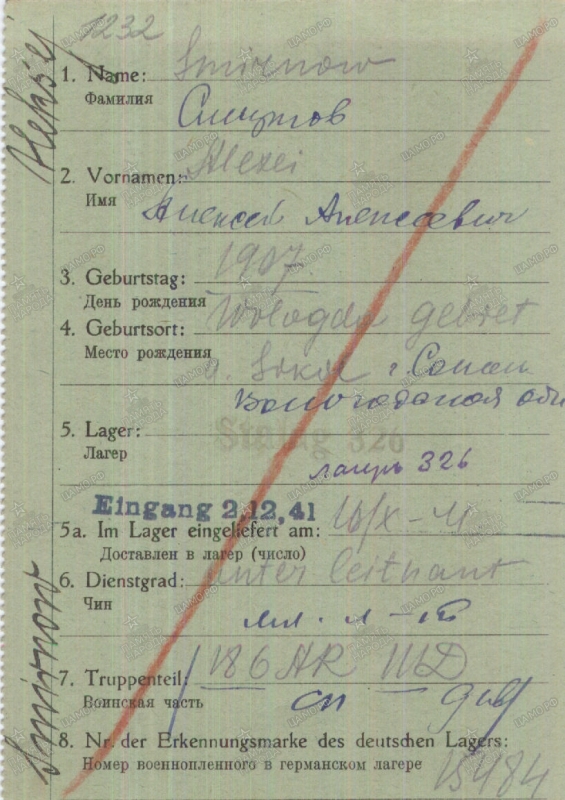 1232
1. Name: Smirnow
Фамилия
Смирнов
2. Vornamen: Alexei
Имя
Алексей Алексеевич
3. Geburtstag: 1907
День рождения
4. Geburtsort: Wologda gebiet
Место рождения
g. Sokol г. Сокол
Вологодская обл
5. Lager: Stalag 326
Лагерь
лагерь 326
Eingang 2.12.41
5a. Im Lager eingeliefert am: 16/X-41
Доставлен в лагерь (число)
6. Dienstgrad: unter leitnant
Чин
мл. л-т
7. Truppenteil: 186 AR III D
Воинская часть
сп див
8. Nr. der Erkennungsmarke des deutschen Lagers:
Номер военнопленного в германском лагере
15484
Smirnow